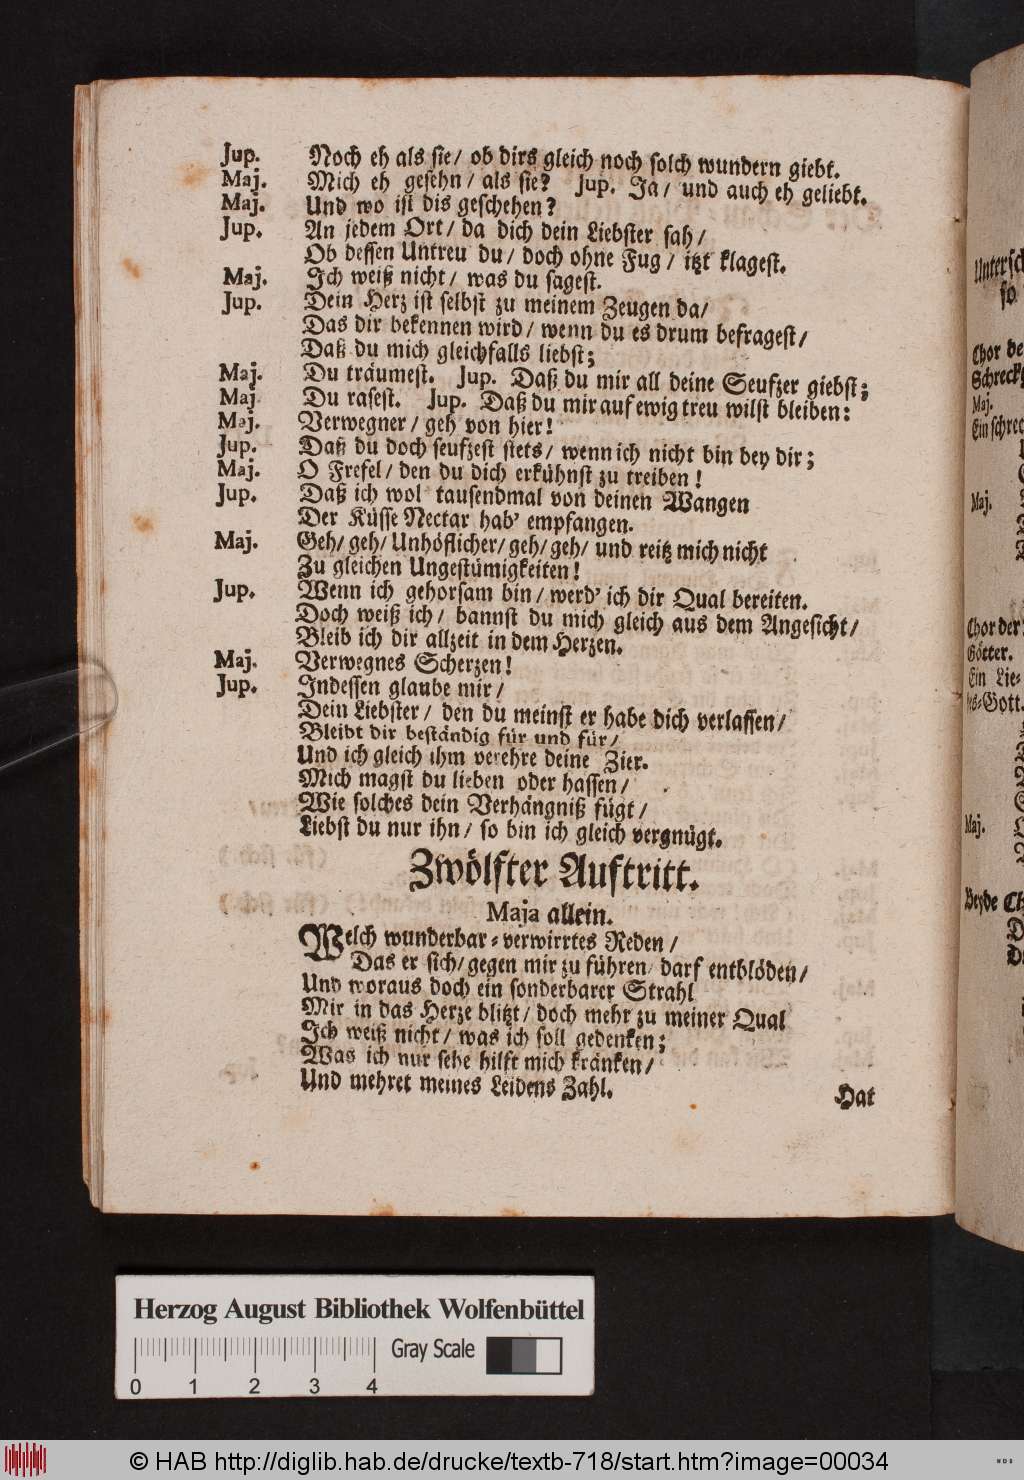 Jup. Noch eh als sie/ ob dirs gleich noch solch wundern giebt.
Maj. Mich eh gesehn/ als sie? Jup. Ja/ und auch eh geliebt.
Maj. Und wo ist dis geschehen?
Jup. An jedem Ort/ da dich dein Liebster sah/
Ob dessen Untreu du/ doch ohne Fug/ itzt klagest.
Maj. Ich weiß nicht/ was du sagest.
Jup. Dein Herz ist selbst zu meinem Zeugen da/
Das dir bekennen wird/ wenn du es drum befragest/
Daß du mich gleichfalls liebst;
Maj. Du träumest. Jup. Daß du mir all deine Seufzer giebst;
Maj Du rasest. Jup. Daß du mir auf ewig treu wilst bleiben:
Maj. Verwegner/ geh von hier!
Jup. Daß du doch seufzest stets/ wenn ich nicht bin bey dir;
Maj. O Frefel/ den du dich erkühnst zu treiben!
Jup. Daß ich wol tausendmal von deinen Wangen
Der Küsse Nectar hab' empfangen.
Maj. Geh/ geh/ Unhöflicher/ geh/ geh/ und reitz mich nicht
Zu gleichen Ungestümigkeiten!
Jup. Wenn ich gehorsam bin/ werd' ich dir Qual bereiten.
Doch weiß ich/ bannst du mich gleich aus dem Angesicht/
Bleib ich dir allzeit in dem Herzen.
Maj. Verwegnes Scherzen!
Jup. Indessen glaube mir/
Dein Liebster/ den du meinst er habe dich verlassen/
Bleibt dir beständig für und für/
Und ich gleich ihm verehre deine Zier.
Mich magst du lieben oder hassen/
Wie solches dein Verhängniß fügt/
Liebst du nur ihn/ so bin ich gleich vergnügt.
Zwölfter Auftritt.
Maja allein.
Welch wunderbar-verwirrtes Reden/
Das er sich/ gegen mir zu führen/ darf entblöden/
Und woraus doch ein sonderbarer Strahl
Mir in das Herze blitzt/ doch mehr zu meiner Qual
Ich weiß nicht/ was ich soll gedenken;
Was ich nur sehe hilft mich kränken/
Und mehret meines Leidens Zahl.
Hat
Untersch
so
Chor de
Schreck
Maj.
Ein schrec
Maj.
Chor der
Götter.
Ein Lie-
bes-Gott.
Maj.
Beyde Ch
Herzog August Bibliothek Wolfenbüttel
Gray Scale
0 1 2 3 4
© HAB http://diglib.hab.de/drucke/textb-718/start.htm?image=00034